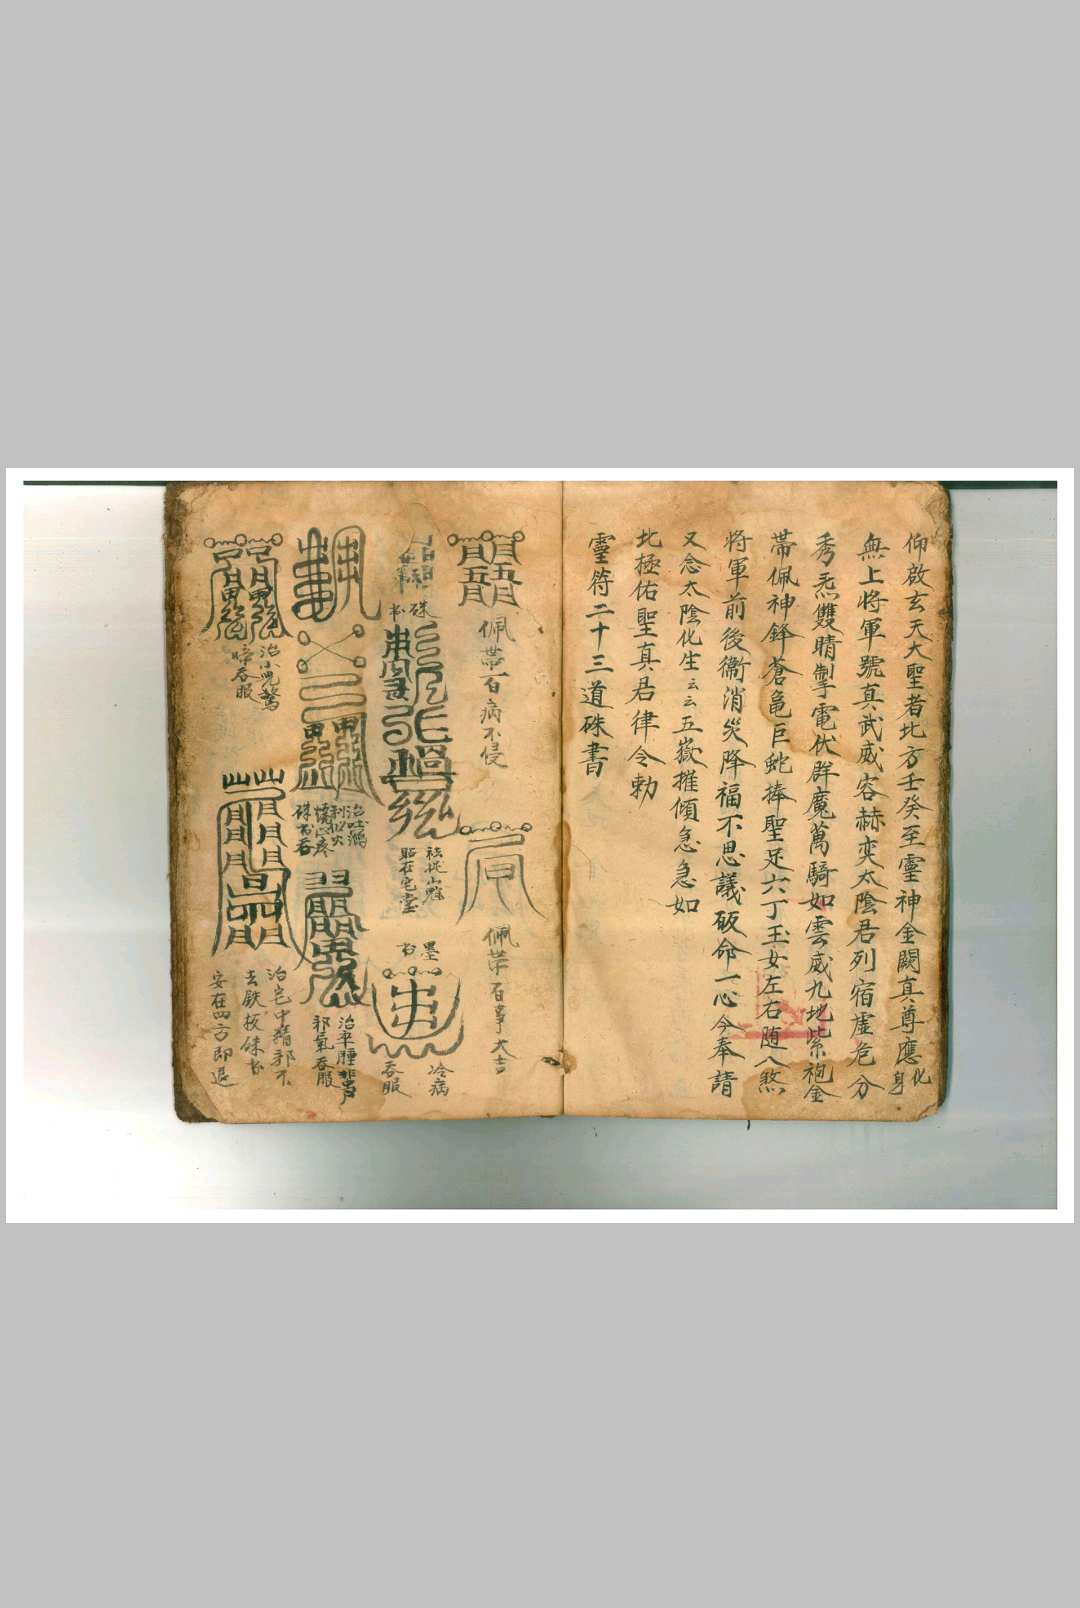 仰啟玄天大聖者北方壬癸至靈神金闕真尊應化身
無上將軍號真武威容赫奕太陰君列宿虛危分
秀炁雙睛掣電伏群魔萬騎如雲威九地紫袍金
帶佩神鋒蒼龜巨蛇捧聖足六丁玉女左右隨八煞
將軍前後衛消災降福不思議皈命一心今奉請
又念太陰化生云云五嶽摧傾急急如
北極佑聖真君律令勅
靈符二十三道硃書
佩帶百病不侵
佩帶百事大吉
硃书
貼在宅堂
墨书
冷病
吞服
治吐瀉
硃书吞
治卒腫
邪氣吞服
治小兒驚
啼吞服
治宅中精邪不
去鉄板硃书
安在四方即退